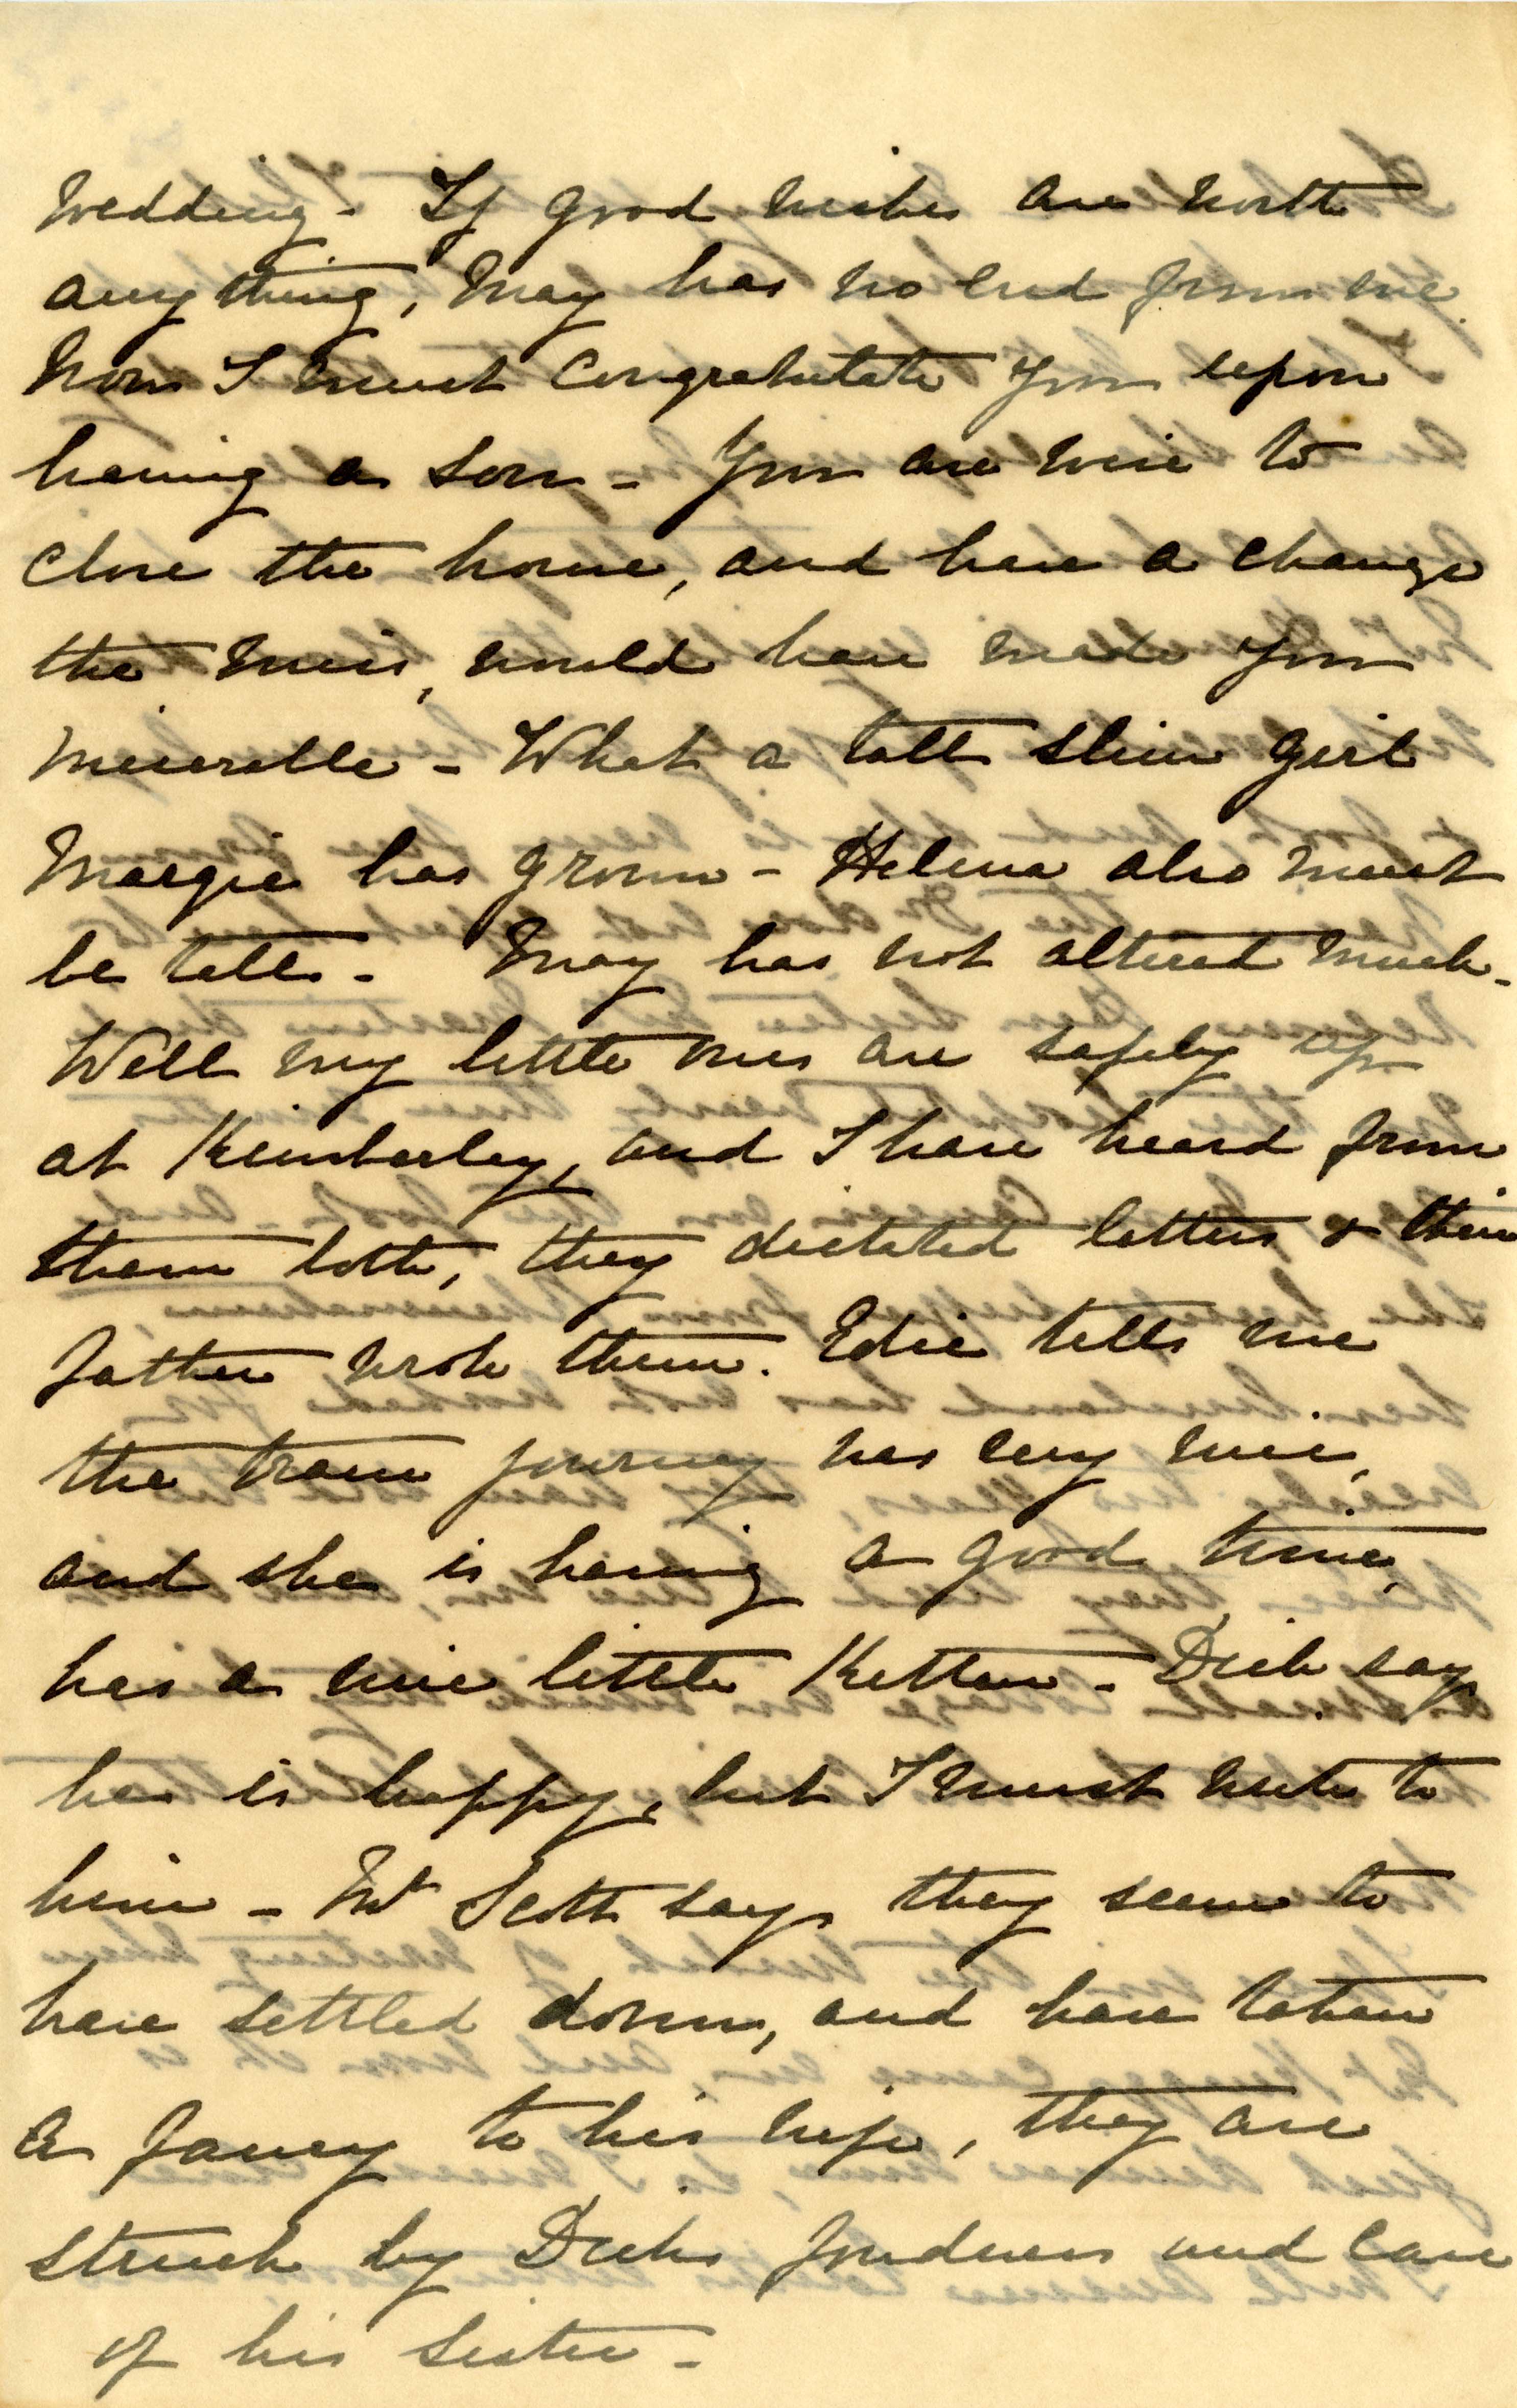 Wedding - If good wishes are worth
anything, May has no end from me.
Now I must congratulate you upon
having a son - You are wise to
close the house, and have a change
the miss, would have made you
miserable - What a tall slim girl
Margie has grown - Helena also must
be tall - May has not altered much -
Well my little ones are safely up
at Kimberley, and I have heard from
them both, they dictated letters & their
Father wrote them. Edie tells me
the train journey was very nice,
and she is having a good time,
has a nice little Kitten - Dick says
he is happy, but I must write to
him - Mr Scott says they seem to
have settled down, and have taken
a fancy to his wife, they are
struck by Dicks fondness and care
of his sister -